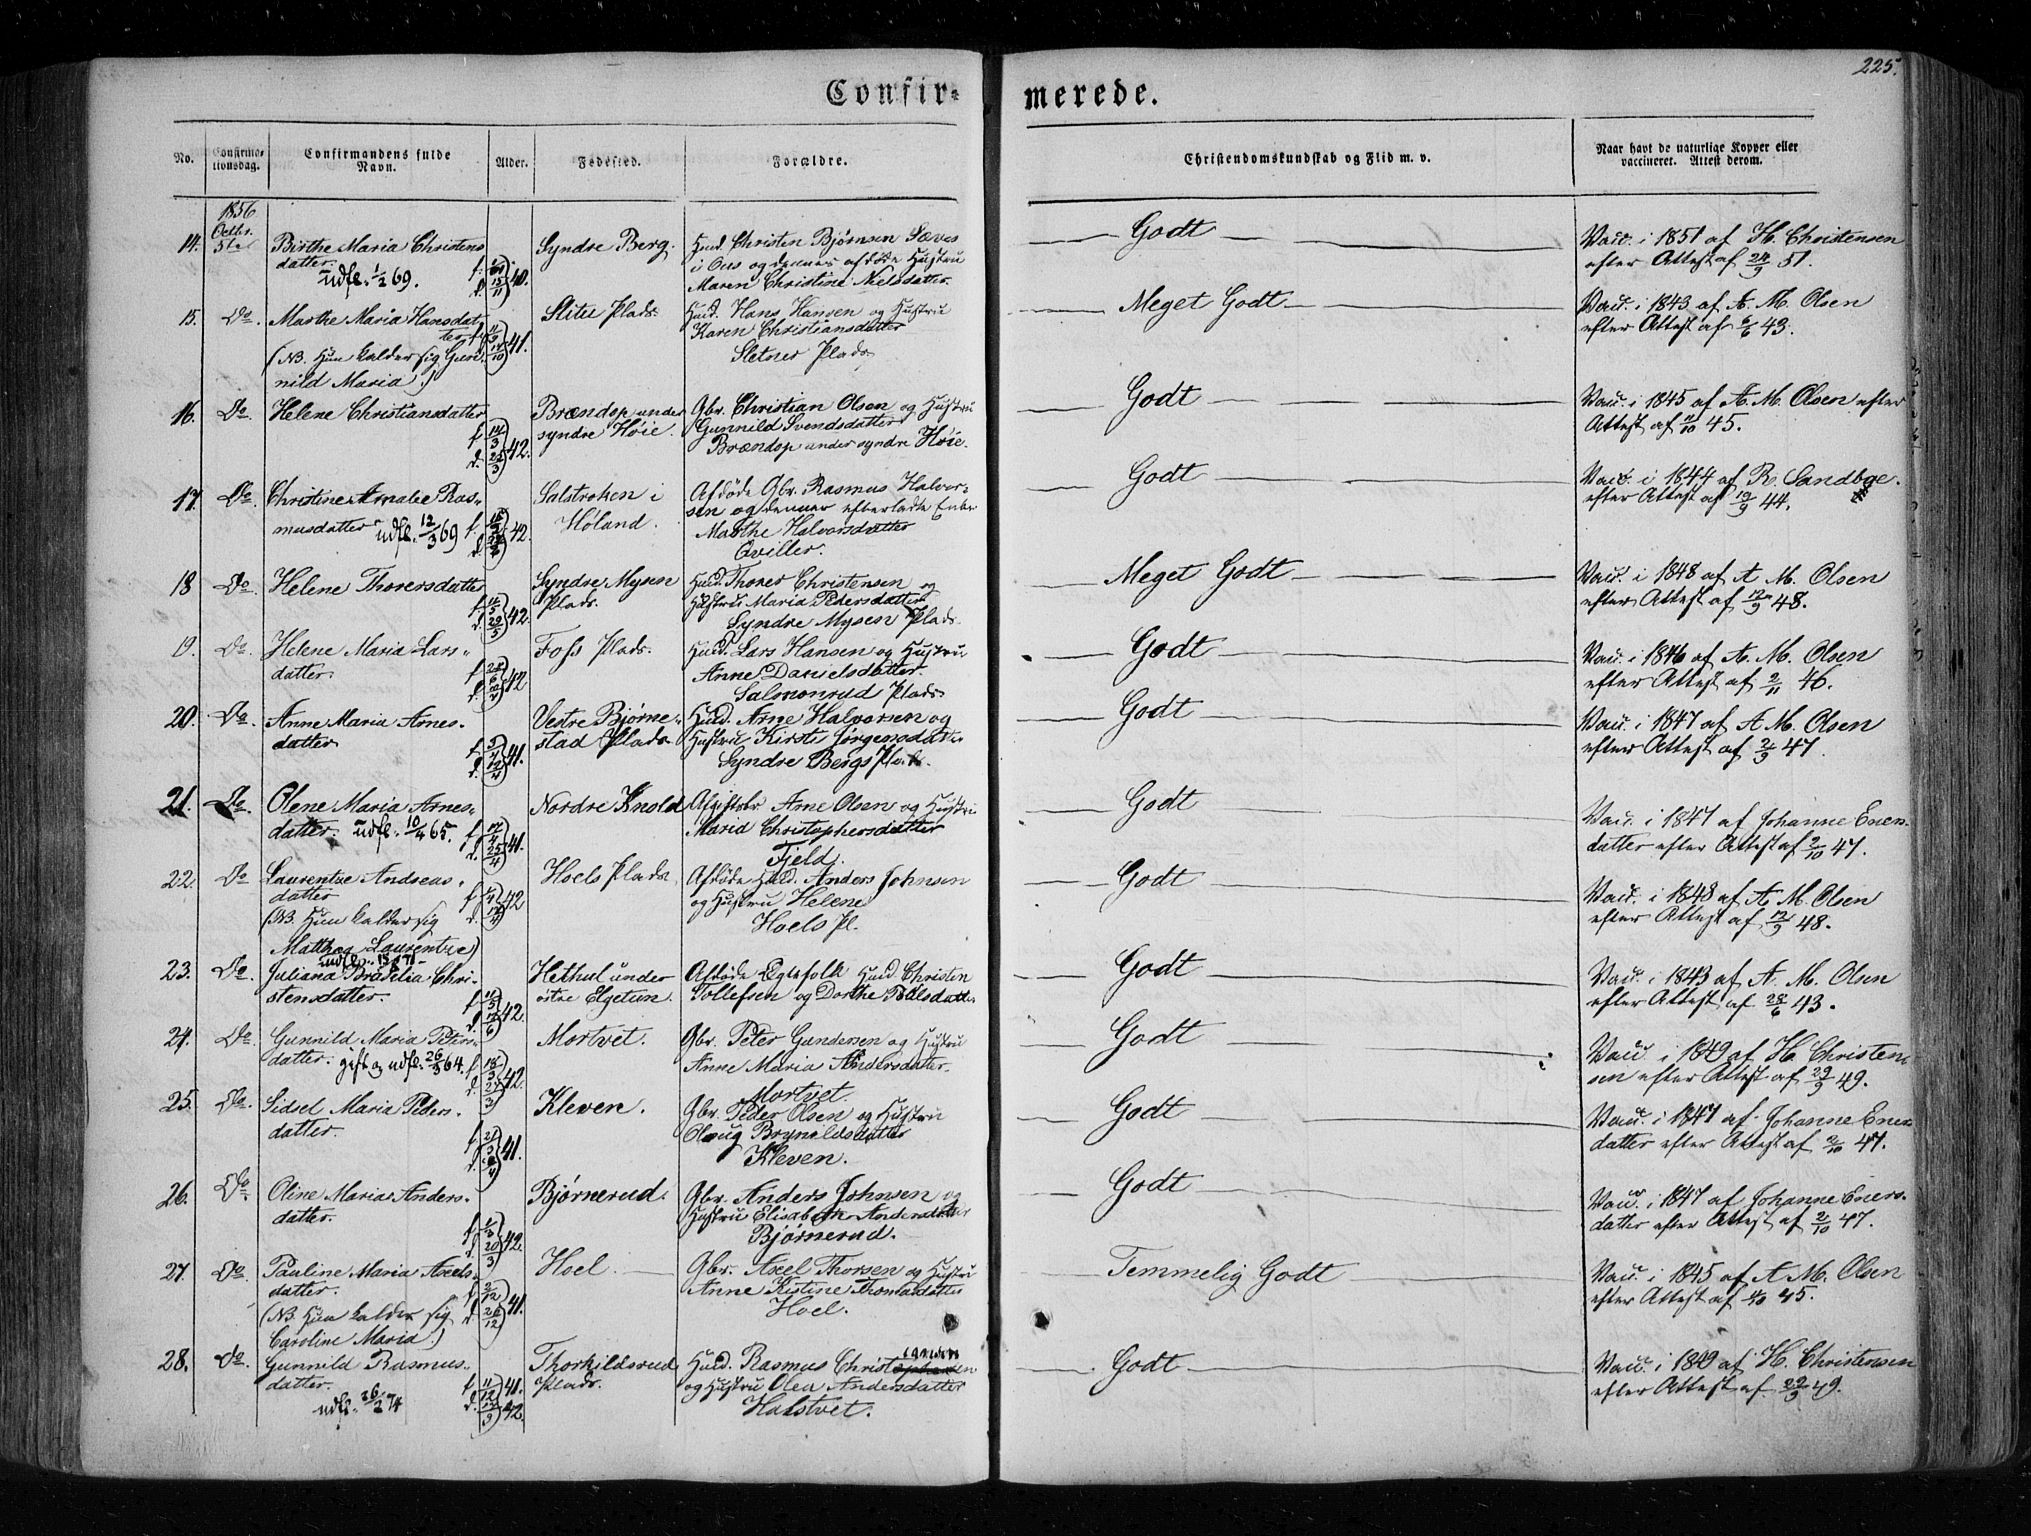 225.
Confir- merede.
No.
Confirma-
tionsdag.
Confirmandens fulde
Navn.
Alder.
Fødested.
Forældre.
Christendomskundskab og Flid m. v.
Naar havt de naturlige Kopper eller
vaccineret. Attest derom.
1856
Octbr.
14. 5te Birthe Maria Christens Syndre Berg. Huusm. Christen Bjørnsen
datter. udfl. 1/2 69. f. d. 15/11 40. og dennes afdøde Hustru
Maren Christine Nielsdatter.
Godt
Vacc. i 1851 af H. Christensen
efter Attest af 24/9 51.
15. Do. Marthe Maria Hansdat- Plads Huusm. Hans Hansen og Hustru
ter f. 11/9 41. d. 14/10 Karen Christiansdatter
(NB. Hun kalder sig Gun- Sletner Plads
nild Maria.)
Meget Godt
Vacc. i 1843 af A. M. Olsen
efter Attest af 6/6 43.
16. Do Helene Christiansdatter Brændop under Gbr. Christian Olsen og Hustru
f. 14/3 42. d. 22/3 syndre Høie. Gunnild Svendsdatter
Brændop under syndre Høie.
Godt
Vacc. i 1845 af A. M. Olsen efter
Attest af 11/10 45.
17. Do. Christine Amalie Ras- i Afdøde Gbr. Rasmus Halvor-
musdatter udfl. 12/3 69 f. d. 42. Høland. sen og dennes efterladte Enke
Marthe Halvorsdatter
Qviller.
Godt
Vacc. i 1844 af R. Sandboe.
efter Attest af 19/9 44.
18 Do Helene Thoresdatter Syndre Mysen Huusm. Thorer Christensen og
f. 16/5 42. d. 29/5 Plads. Hustru Maria Pedersdatter
Syndre Mysen Plads.
Meget Godt
Vacc. i 1848 af A M. Olsen
efter Attest af 12/9 48.
19. Do. Helene Maria Lars- Foss Plads. Huusm. Lars Hansen og Hustru
datter. f. d. 42 Anne Danielsdatter.
Salmonrud Plads.
Godt
Vacc. i 1846 af A. M. Olsen
efter Attest af 2/11 46.
20. Do. Anne Maria Arnes- Vestre Bjørne- Huusm. Arne Halvorsen og
datter f. d. 41. stad Plads. Hustru Kirsti Jørgensdatter
Syndre Bergs Plads.
Godt
Vacc. i 1847 af A M. Olsen
efter Attest af 2/9 47.
21. Do. Olene Maria Arnes- Nordre Knold Afgiftsbr. Arne Olsen og Hustru
datter. udfl. 10/4 65. f. d. 25/4 41. Maria Christophersdatter
Fjeld.
Godt
Vacc. i 1847 af Johanne Ener-
datter efter Attest af 2/10 47.
22. Do Laurentze Andreas- Hoels Plads. Afdøde Huusm. Anders Johnsen
datter f. d. 42 og Hustru Helene
(NB. Hun kalder sig Hoels Pl.
Mathea Laurentze)
Godt
Vacc. i 1848 af A M. Olsen
efter Attest af 12/9 48.
udfl.
23. Do. Juliana Chri- Hethul under Afdøde Egtefolk Huusm. Christen
stensdatter. f. d. 42. østre Elgetun. Tollefsen og Dorthe Pålsdatter
Godt
Vacc. i 1843 af A. M. Olsen
efter Attest af 28/6 43.
24. Do. Gunnild Maria Peters- Mortvet. Gbr. Peter Gundersen og Hustru
datter. gift og udfl. 26/3 64. f. d. 42. Anne Maria Andersdatter.
Mortvet.
Godt
Vacc. i 1849 af H. Christen-
sen efter Attest af 29/9 49.
25. Do. Sidsel Maria Peders- Kleven. Gbr. Peder Olsen og Hustru
datter. f. 21/3 41. d. Olaug Brynildsdatter
Kleven.
Godt
Vacc. i 1847 af Johanne Ener-
datter efter Attest af 2/10 47.
26. Do. Oline Maria Anders- Bjørnerud. Gbr. Anders Johnsen og
datter. f. d. 20/3 42. Hustru Elisabeth Andersdatter
Bjørnerud.
Godt
Vacc. i 1847 af Johanne Eners-
datter efter Attest af 2/10 47.
27. Do. Pauline Maria Axels- Hoel. Gbr. Axel Thorsen og Hustru
datter. f. 2/12 41. d. 26/12 Anne Kistine Thomasdatter
(NB. Hun kalder sig Hoel.
Caroline Maria.)
Temmelig Godt
Vacc. i 1845 af A M. Olsen
efter Attest af 45.
28. Do. Gunnild Rasmus- Thorkildsrud Huusm. Rasmus Christ
datter. f. 11/12 41. Plads. og Hustru Olea Andersdatter
udfl. 26/2 74 d. 42. Halstvet.
Godt
Vacc. i 1849 af H. Christensen
efter Attest af 29/9 49.